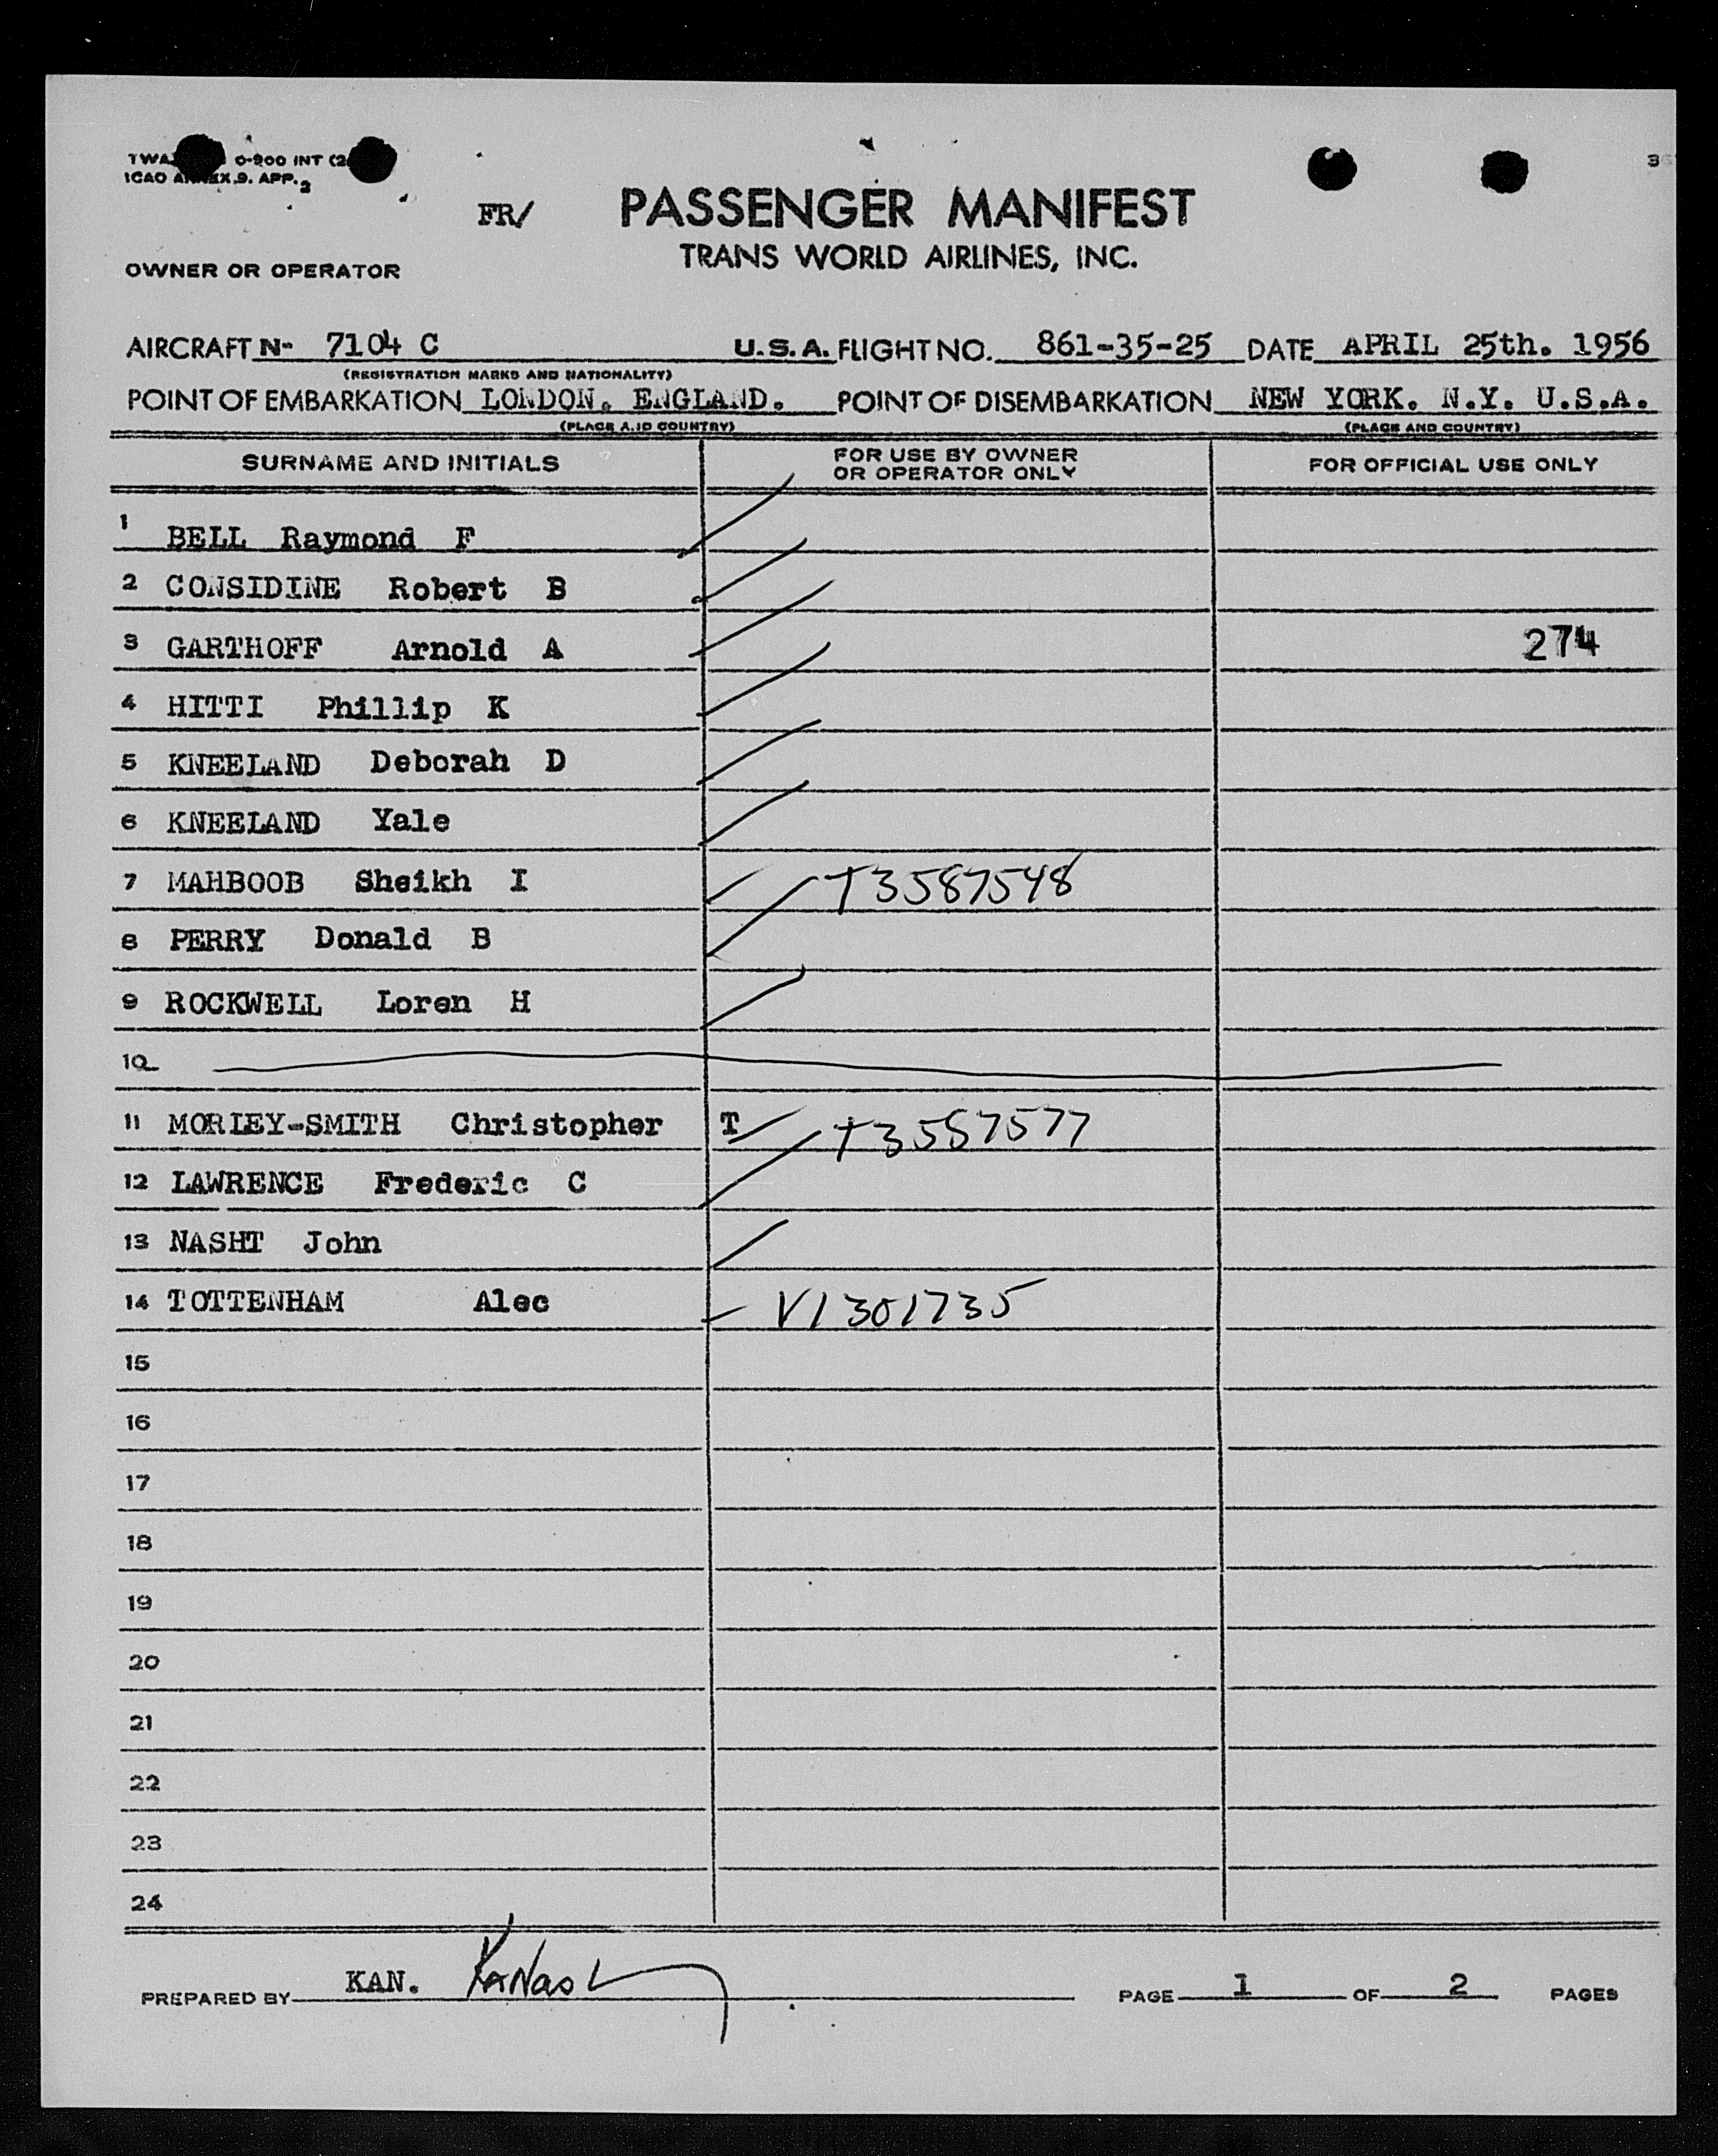 O-200 INT (2
ICAO ANNEX.9. APP. 2
FR/ PASSENGER MANIFEST
TRANS WORLD AIRLINES, INC.
OWNER OR OPERATOR
AIRCRAFT N- 7104 C U.S.A. FLIGHT NO. 861-35-25 DATE APRIL 25th. 1956
(REGISTRATION MARKS AND NATIONALITY)
POINT OF EMBARKATION LONDON. ENGLAND. POINT OF DISEMBARKATION NEW YORK. N.Y. U.S.A.
(PLACE AND COUNTRY) (PLACE AND COUNTRY)
SURNAME AND INITIALS FOR USE BY OWNER OR OPERATOR ONLY FOR OFFICIAL USE ONLY
1 BELL Raymond F
2 CONSIDINE Robert B
3 GARTHOFF Arnold A 274
4 HITTI Phillip K
5 KNEELAND Deborah D
6 KNEELAND Yale
7 MAHBOOB Sheikh I T3587548
8 PERRY Donald B
9 ROCKWELL Loren H
10
11 MORLEY-SMITH Christopher T T3557577
12 LAWRENCE Frederic C
13 NASHT John
14 TOTTENHAM Alec V1301735
15
16
17
18
19
20
21
22
23
24
PREPARED BY KAN. PAGE 1 OF 2 PAGES